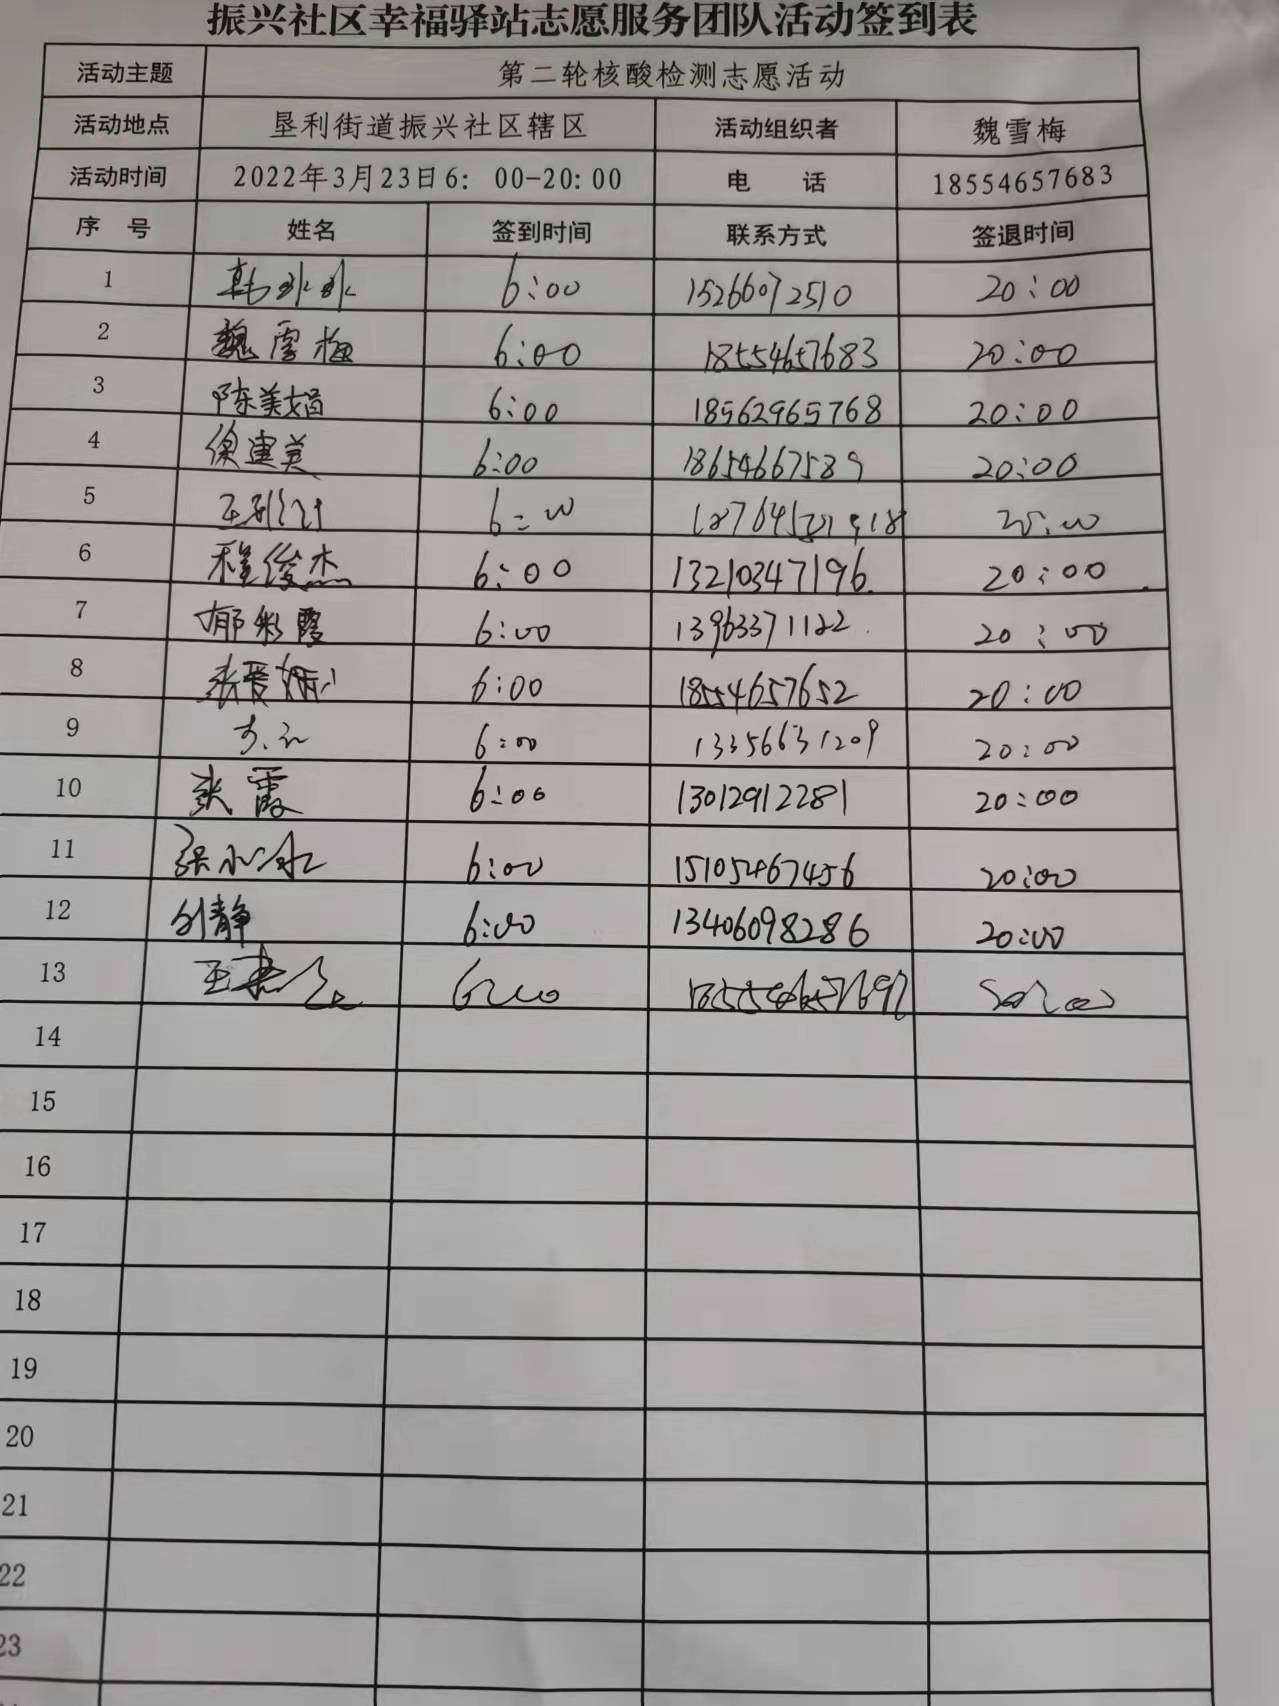 振兴社区幸福驿站志愿服务团队活动签到表
活动主题 第二轮核酸检测志愿活动
活动地点 垦利街道振兴社区辖区 活动组织者 魏雪梅
活动时间 2022年3月23日6：00-20:00 电 话 18554657683
序 号 姓名 签到时间 联系方式 签退时间
1 韩冰冰 6:00 15266072510 20:00
2 魏雪梅 6:00 18554657683 20:00
3 陈美娟 6:00 18562965768 20:00
4 徐建美 6:00 18654667589 20:00
5 6:00 20:00
6 程俊杰 6:00 13210347196 20:00
7 郁彩霞 6:00 13963371122 20:00
8 张爱娜 6:00 18554657652 20:00
9 6:00 13356631209 20:00
10 张霞 6:00 13012912281 20:00
11 张小冰 6:00 15105467456 20:00
12 刘静 6:00 13406098286 20:00
13 6:00
14
15
16
17
18
19
20
21
22
23